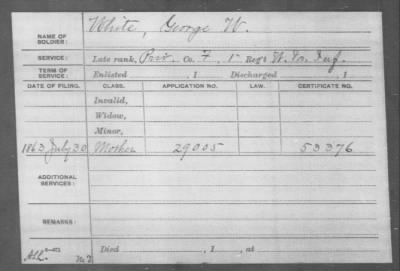 NAME OF SOLDIER: White, George W.
SERVICE: Late rank, Priv. Co. F. 1 Reg't W. Va. Inf.
TERM OF SERVICE: Enlisted , 1 Discharged , 1
DATE OF FILING. CLASS. APPLICATION NO. LAW. CERTIFICATE NO.
Invalid,
Widow,
Minor,
1863 July 30 Mother 29005 53376
ADDITIONAL SERVICES:
REMARKS:
Died , 1 , at